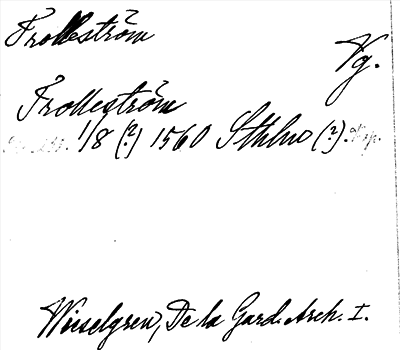 Trolleström
Vg.
Trolleström
1/8 (?) 1560 Sthlm (?).
Wieselgren, De la Gard. Arch. I.